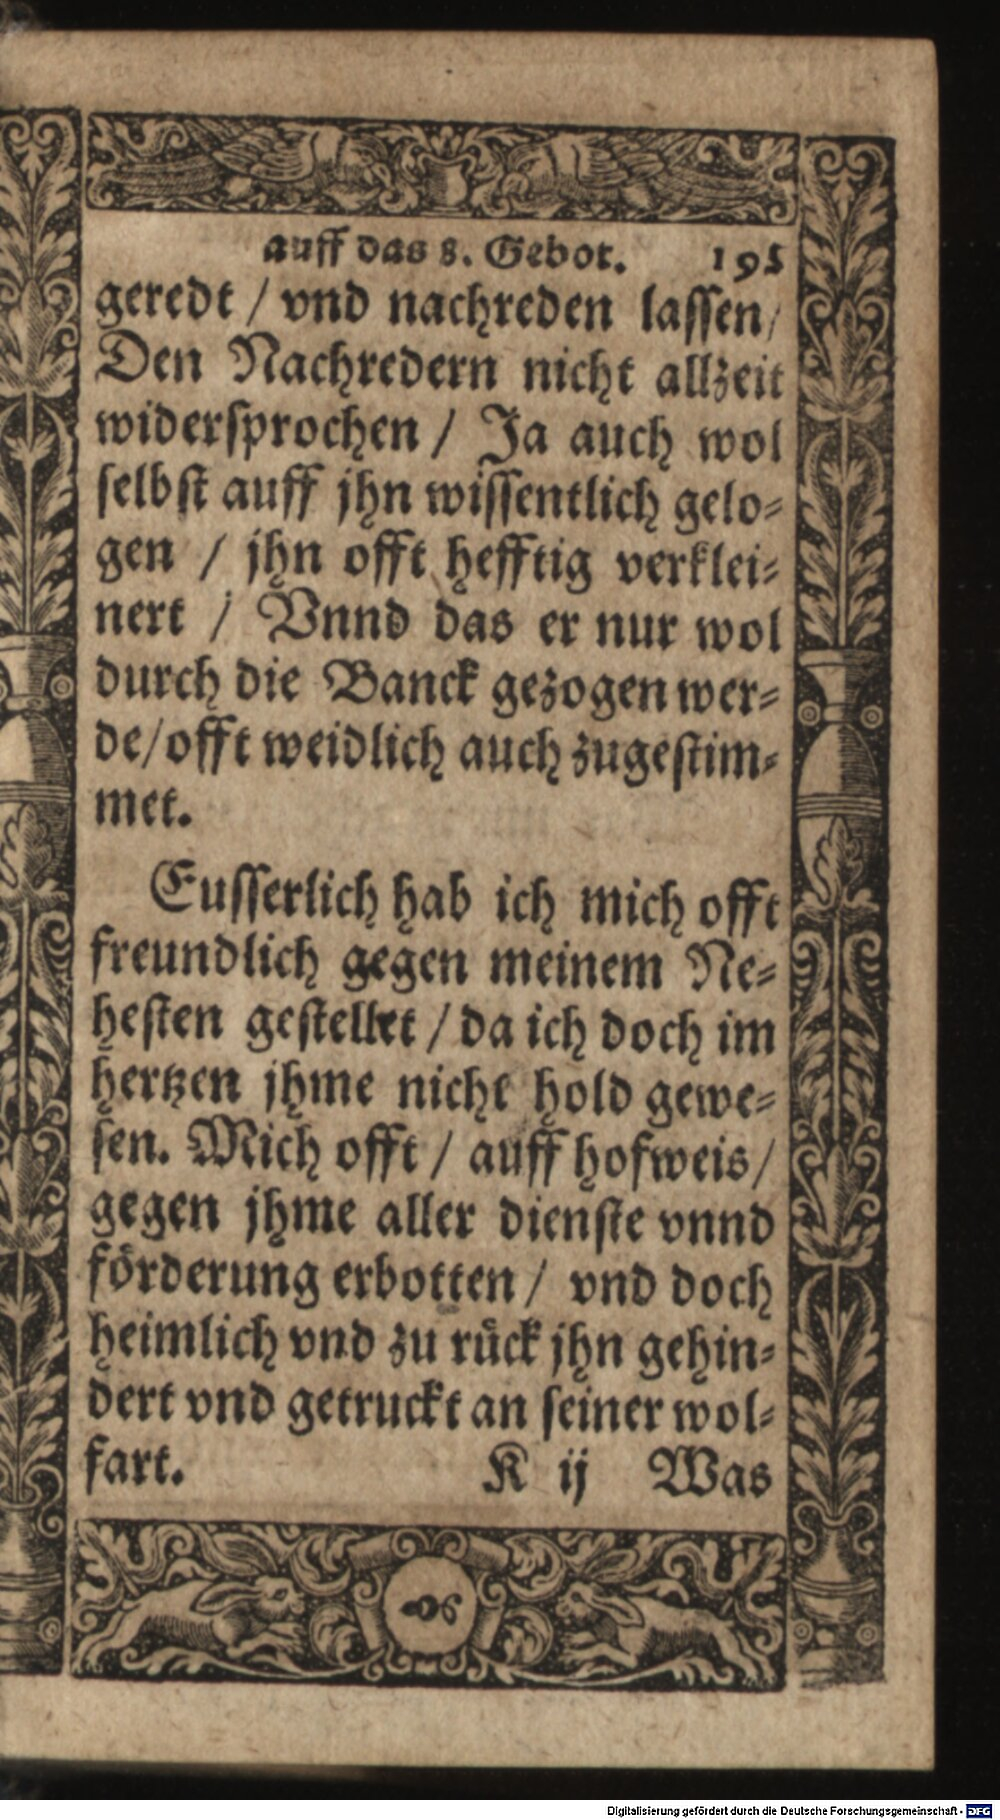 auff das 8. Gebot. 195
geredt / vnd nachreden lassen /
Den Nachredern nicht allzeit
widersprochen / Ja auch wol
selbst auff jhn wissentlich gelo⸗
gen / jhn offt hefftig verklei⸗
nert / Vnnd das er nur wol
durch die Banck gezogen wer⸗
de / offt weidlich auch zugestim⸗
met.
Eusserlich hab ich mich offt
freundlich gegen meinem Ne⸗
hesten gestellet / da ich doch im
hertzen jhme nicht hold gewe⸗
sen. Mich offt / auff hofweis /
gegen jhme aller dienste vnnd
förderung erbotten / vnd doch
heimlich vnd zu rück jhn gehin⸗
dert vnd getruckt an seiner wol⸗
fart. K ij Was
Digitalisierung gefördert durch die Deutsche Forschungsgemeinschaft - DFG